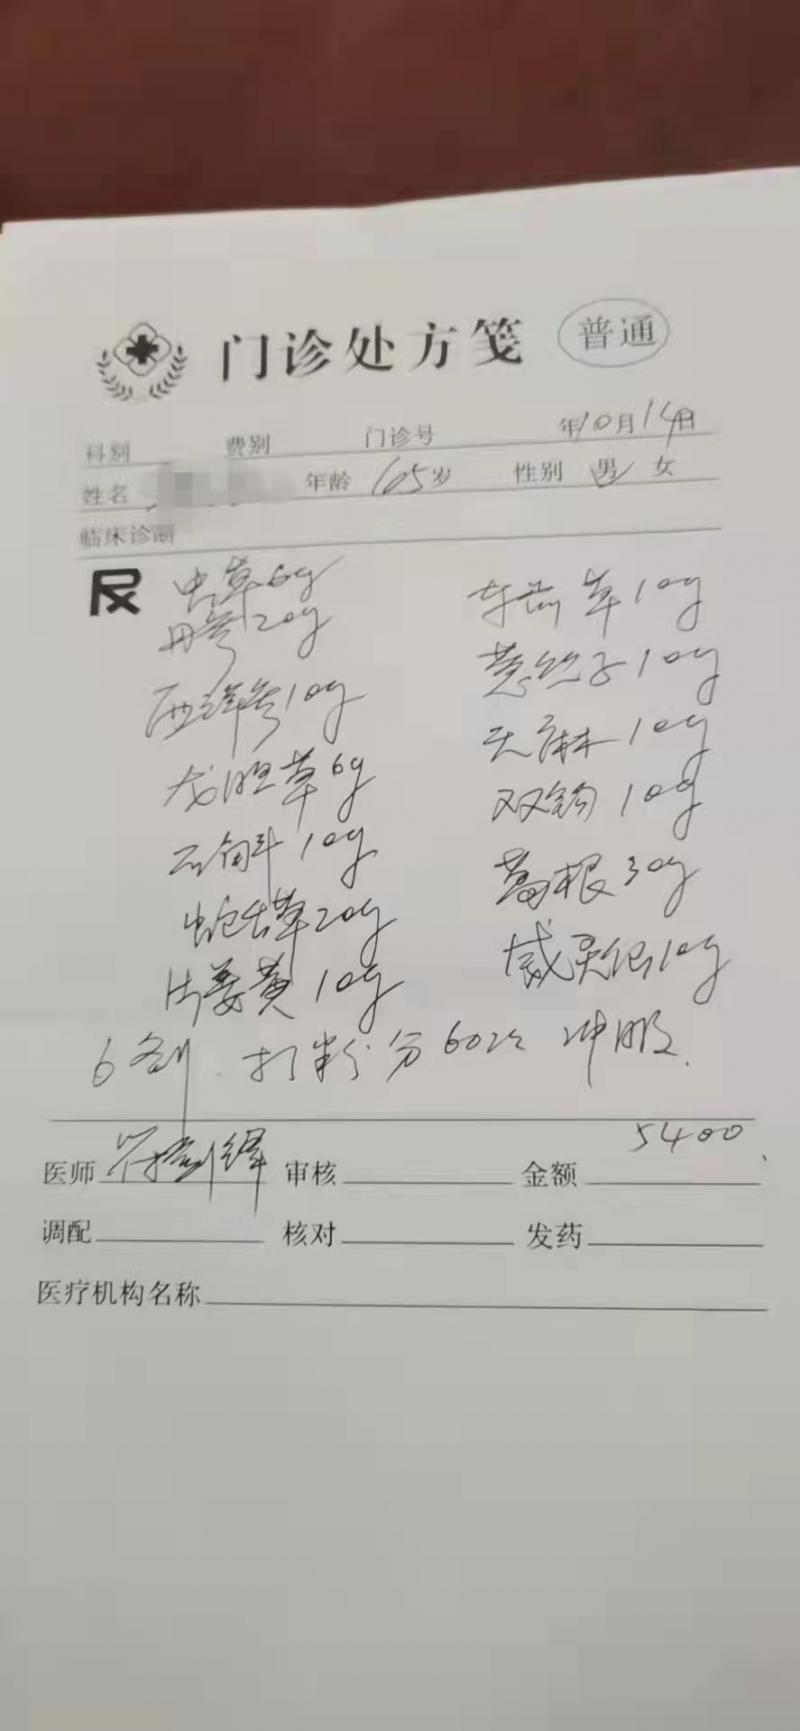 门诊处方笺 普通
科别 费别 门诊号 年10月14日
姓名 年龄 65岁 性别 男 女
临床诊断
R
虫草6g 车前草10g
丹参20g
西洋参10g 菟丝子10g
龙胆草6g 天麻10g
石斛10g 双钩10g
蛇舌草20g 葛根30g
片姜黄10g 威灵仙10g
6剂.打粉分60次 冲服.
医师 审核 金额 5400
调配 核对 发药
医疗机构名称